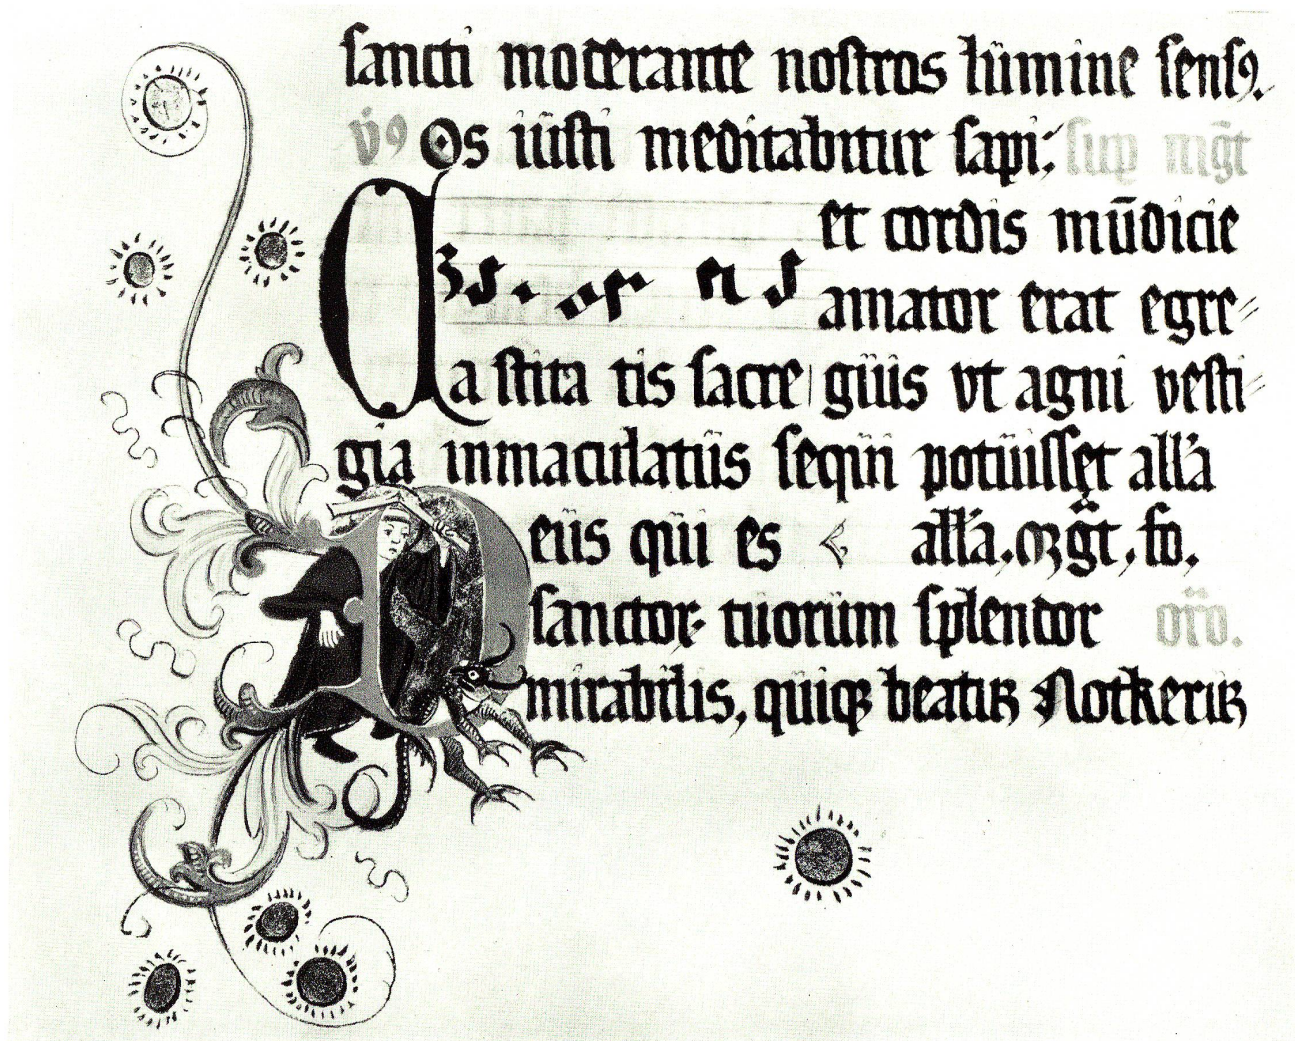 sancti moderante nostros lumine sensꝯ.
v̾ꝯ Os iusti meditabitur sapi: sup mg̃t
et cordis mūdicie
amator erat egre⸗
Castita tis sacre gius vt agni vesti⸗
gia inmaculatus sequi potuisset all'a
eius qui es all'a, mg̃t, fo.
Dsanctor tuorum splendor or̃o.
mirabilis, quiqꝫ beatus Notkerus